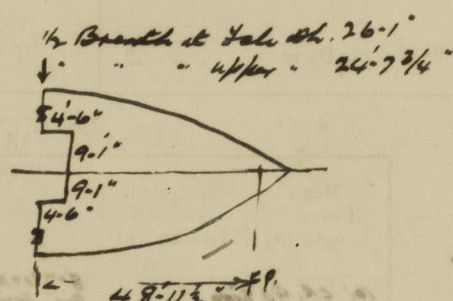 ½ Breadth at Fcle dk. 26'-1"
" " " upper " 24'-7¾"
4'-6"
9'-1"
9'-1"
4-6"
48'-11½" F.P.